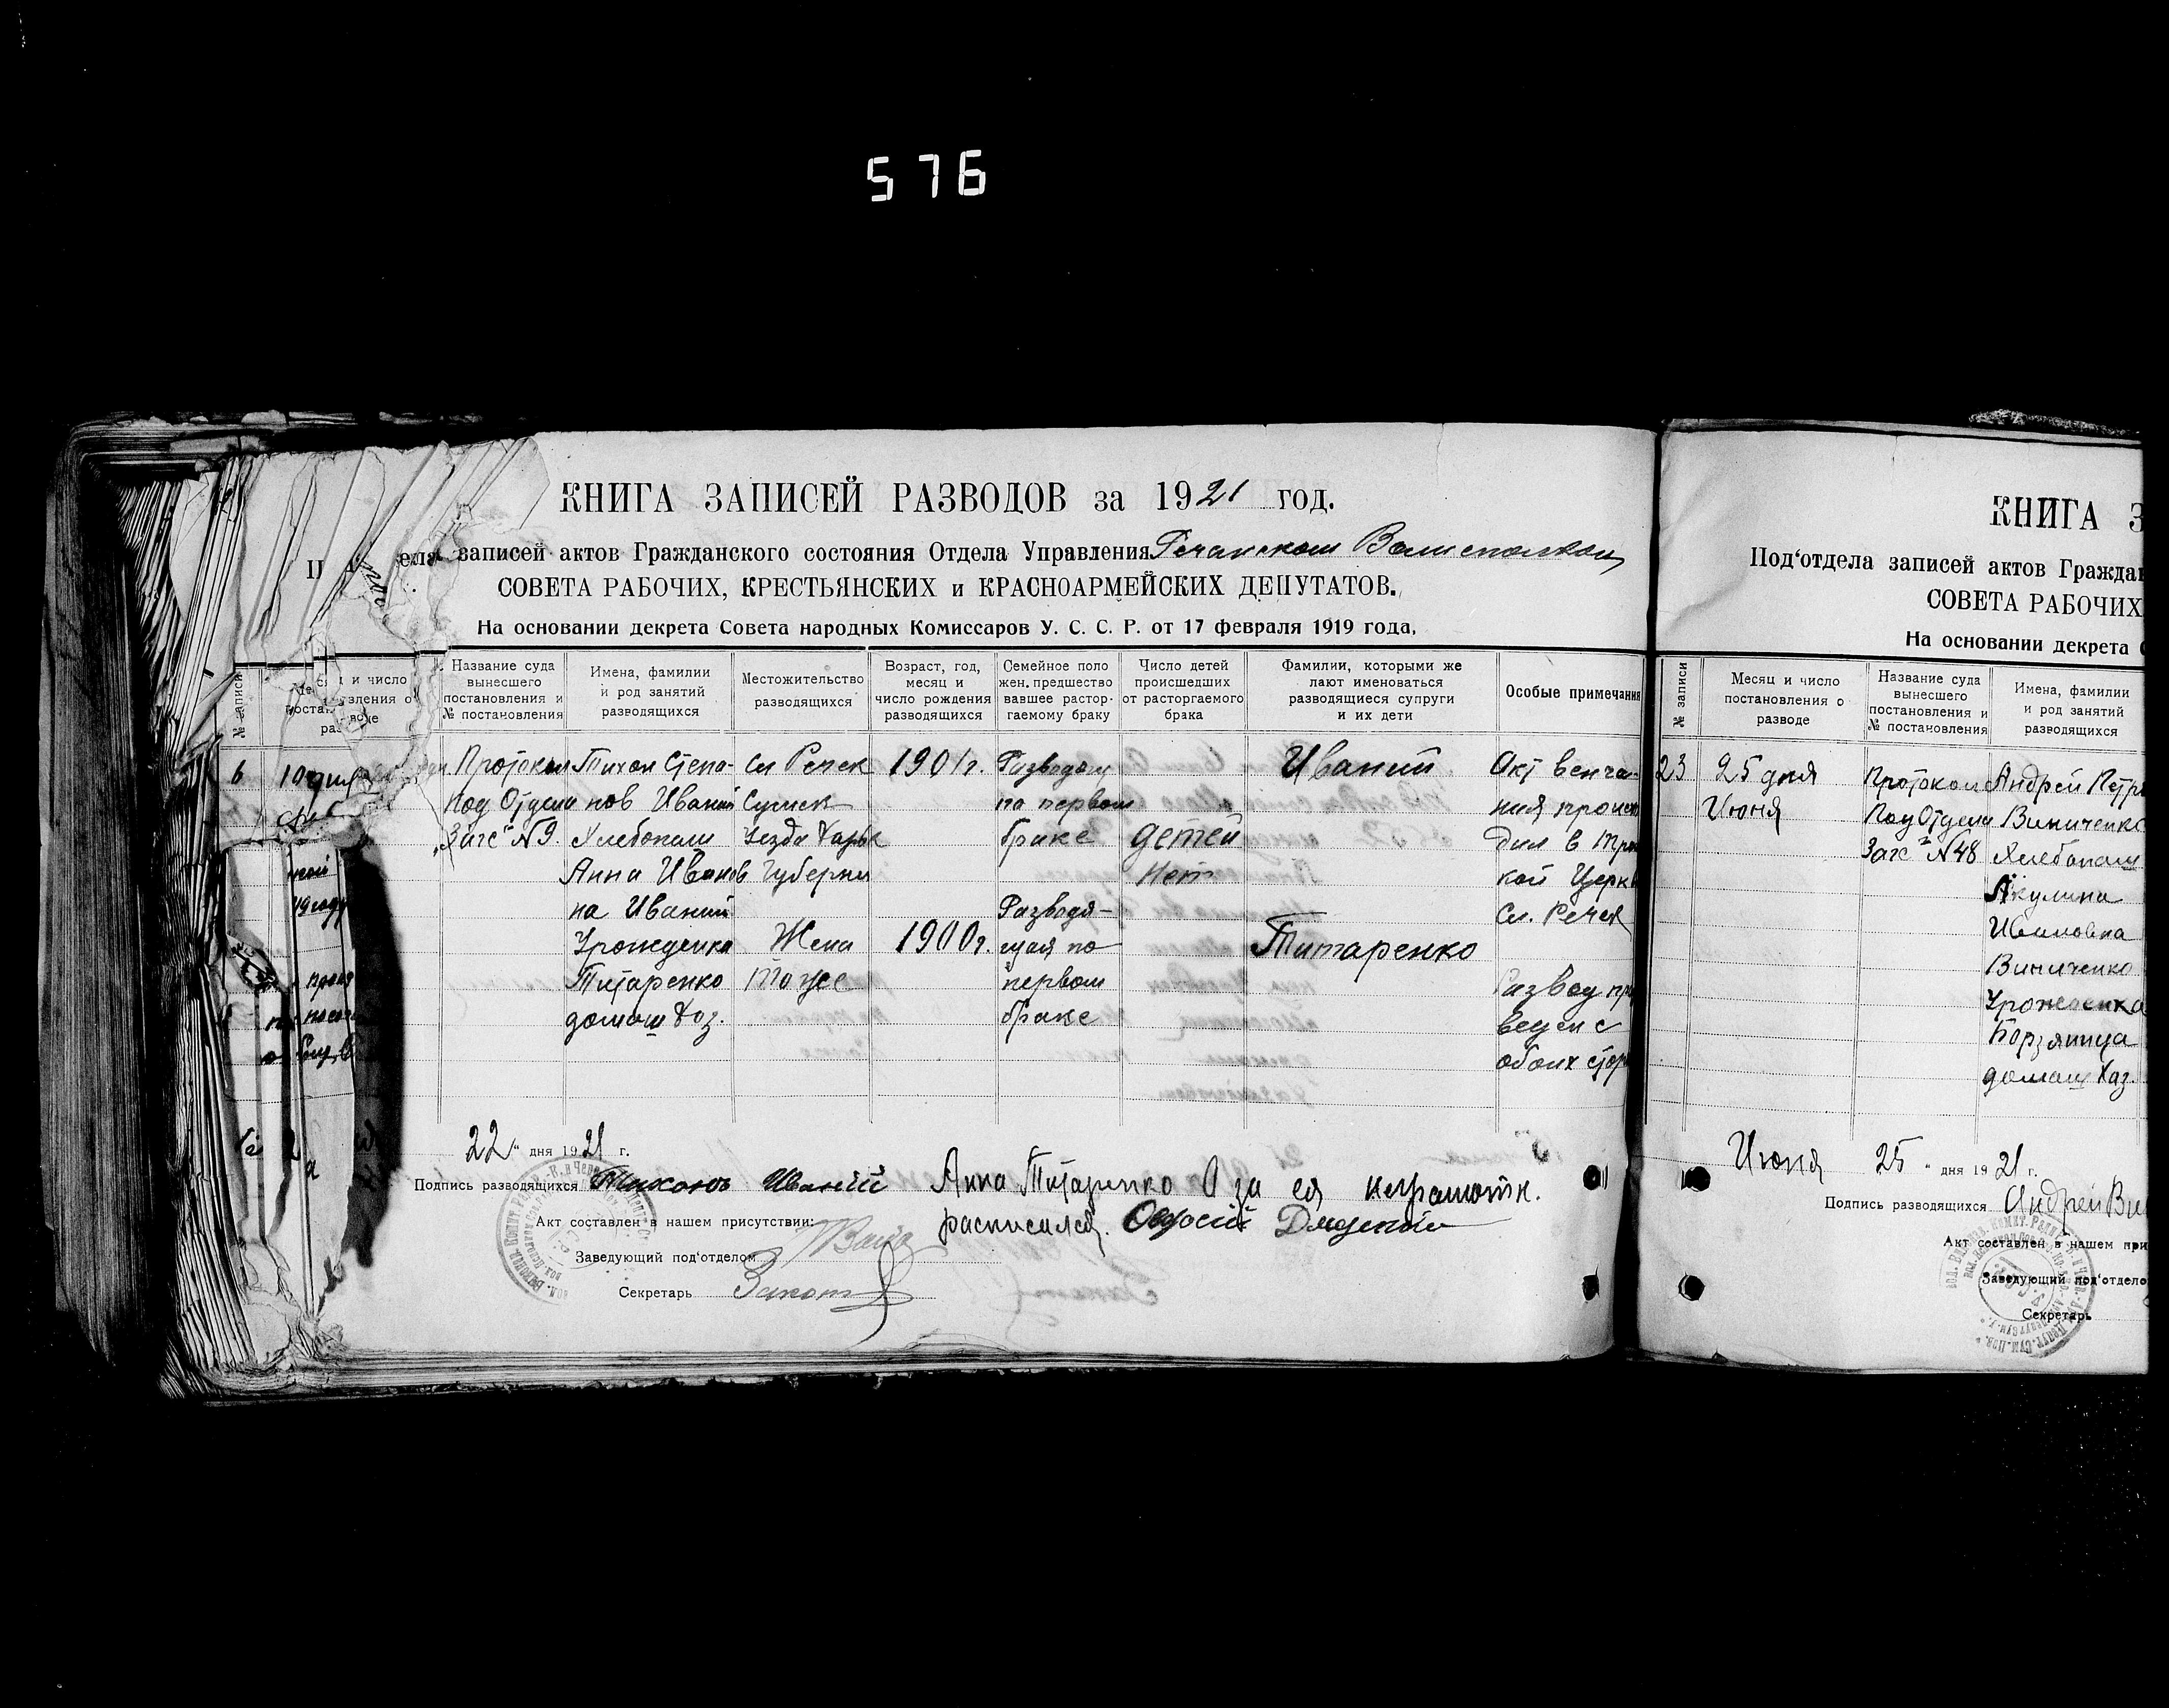 576
КНИГА ЗАПИСЕЙ РАЗВОДОВ за 1921 год.
записей актов Гражданского состояния Отдела Управления
СОВЕТА РАБОЧИХ, КРЕСТЬЯНСКИХ и КРАСНОАРМЕЙСКИХ ДЕПУТАТОВ.
На основании декрета Совета народных Комиссаров У. С. С. Р. от 17 февраля 1919 года,
№ записи
и число
Название суда
вынесшего
постановления и
№ постановления
Имена, фамилии
и род занятий
разводящихся
Местожительство
разводящихся
Возраст, год,
месяц и
число рождения
разводящихся
Семейное поло
жен. предшество
вавшее растор-
гаемому браку
Число детей
происшедших
от расторгаемого
брака
Фамилии, которыми же
лают именоваться
разводящиеся супруги
и их дети
Особые примечания
6
10
Протокол
Под Отдела
Загс" №9.
Тихон Степа-
нов Иваний
Хлебопаш
Анна Иванов
на Иваний
Урожденка
Титаренко
домаш Хоз.
Сл Речек
Сумск
Уезда Харьк
Губернии
Жена
Тоже
1901г.
1900г.
Разводом
по первом
браке
Разводя-
щая по
первом
браке
детей
Нет
Иваний
Титаренко
Акт венча-
ния произ
дил в
кой Церк
Сл. Речек
Развод пр
веден с
обоих стор
22" дня 1921 г.
Подпись разводящихся Тихонъ Иваній Анна Титаренко А за ея неграмотн.
Акт составлен в нашем присутствии: расписался.
Заведующий под'отделом
Секретарь
КНИГА З
Под'отдела записей актов Граждан
СОВЕТА РАБОЧИХ
На основании декрета
№ записи
Месяц и число
постановления о
разводе
Название суда
вынесшего
постановления и
№ постановления
Имена, фамилии
и род занятий
разводящихся
23
25 дня
Июня
Протокол
Под Отдела
Загс" №48
Андрей Петр
Виниченко
Хлебопаш
Акулина
Ивановна
Виниченко
Урожденка
домаш Хаз.
Июня 25 " дня 1921 г.
Подпись разводящихся Андрей Ви
Акт составлен в нашем при
Заведующий под'отдело
Секретарь